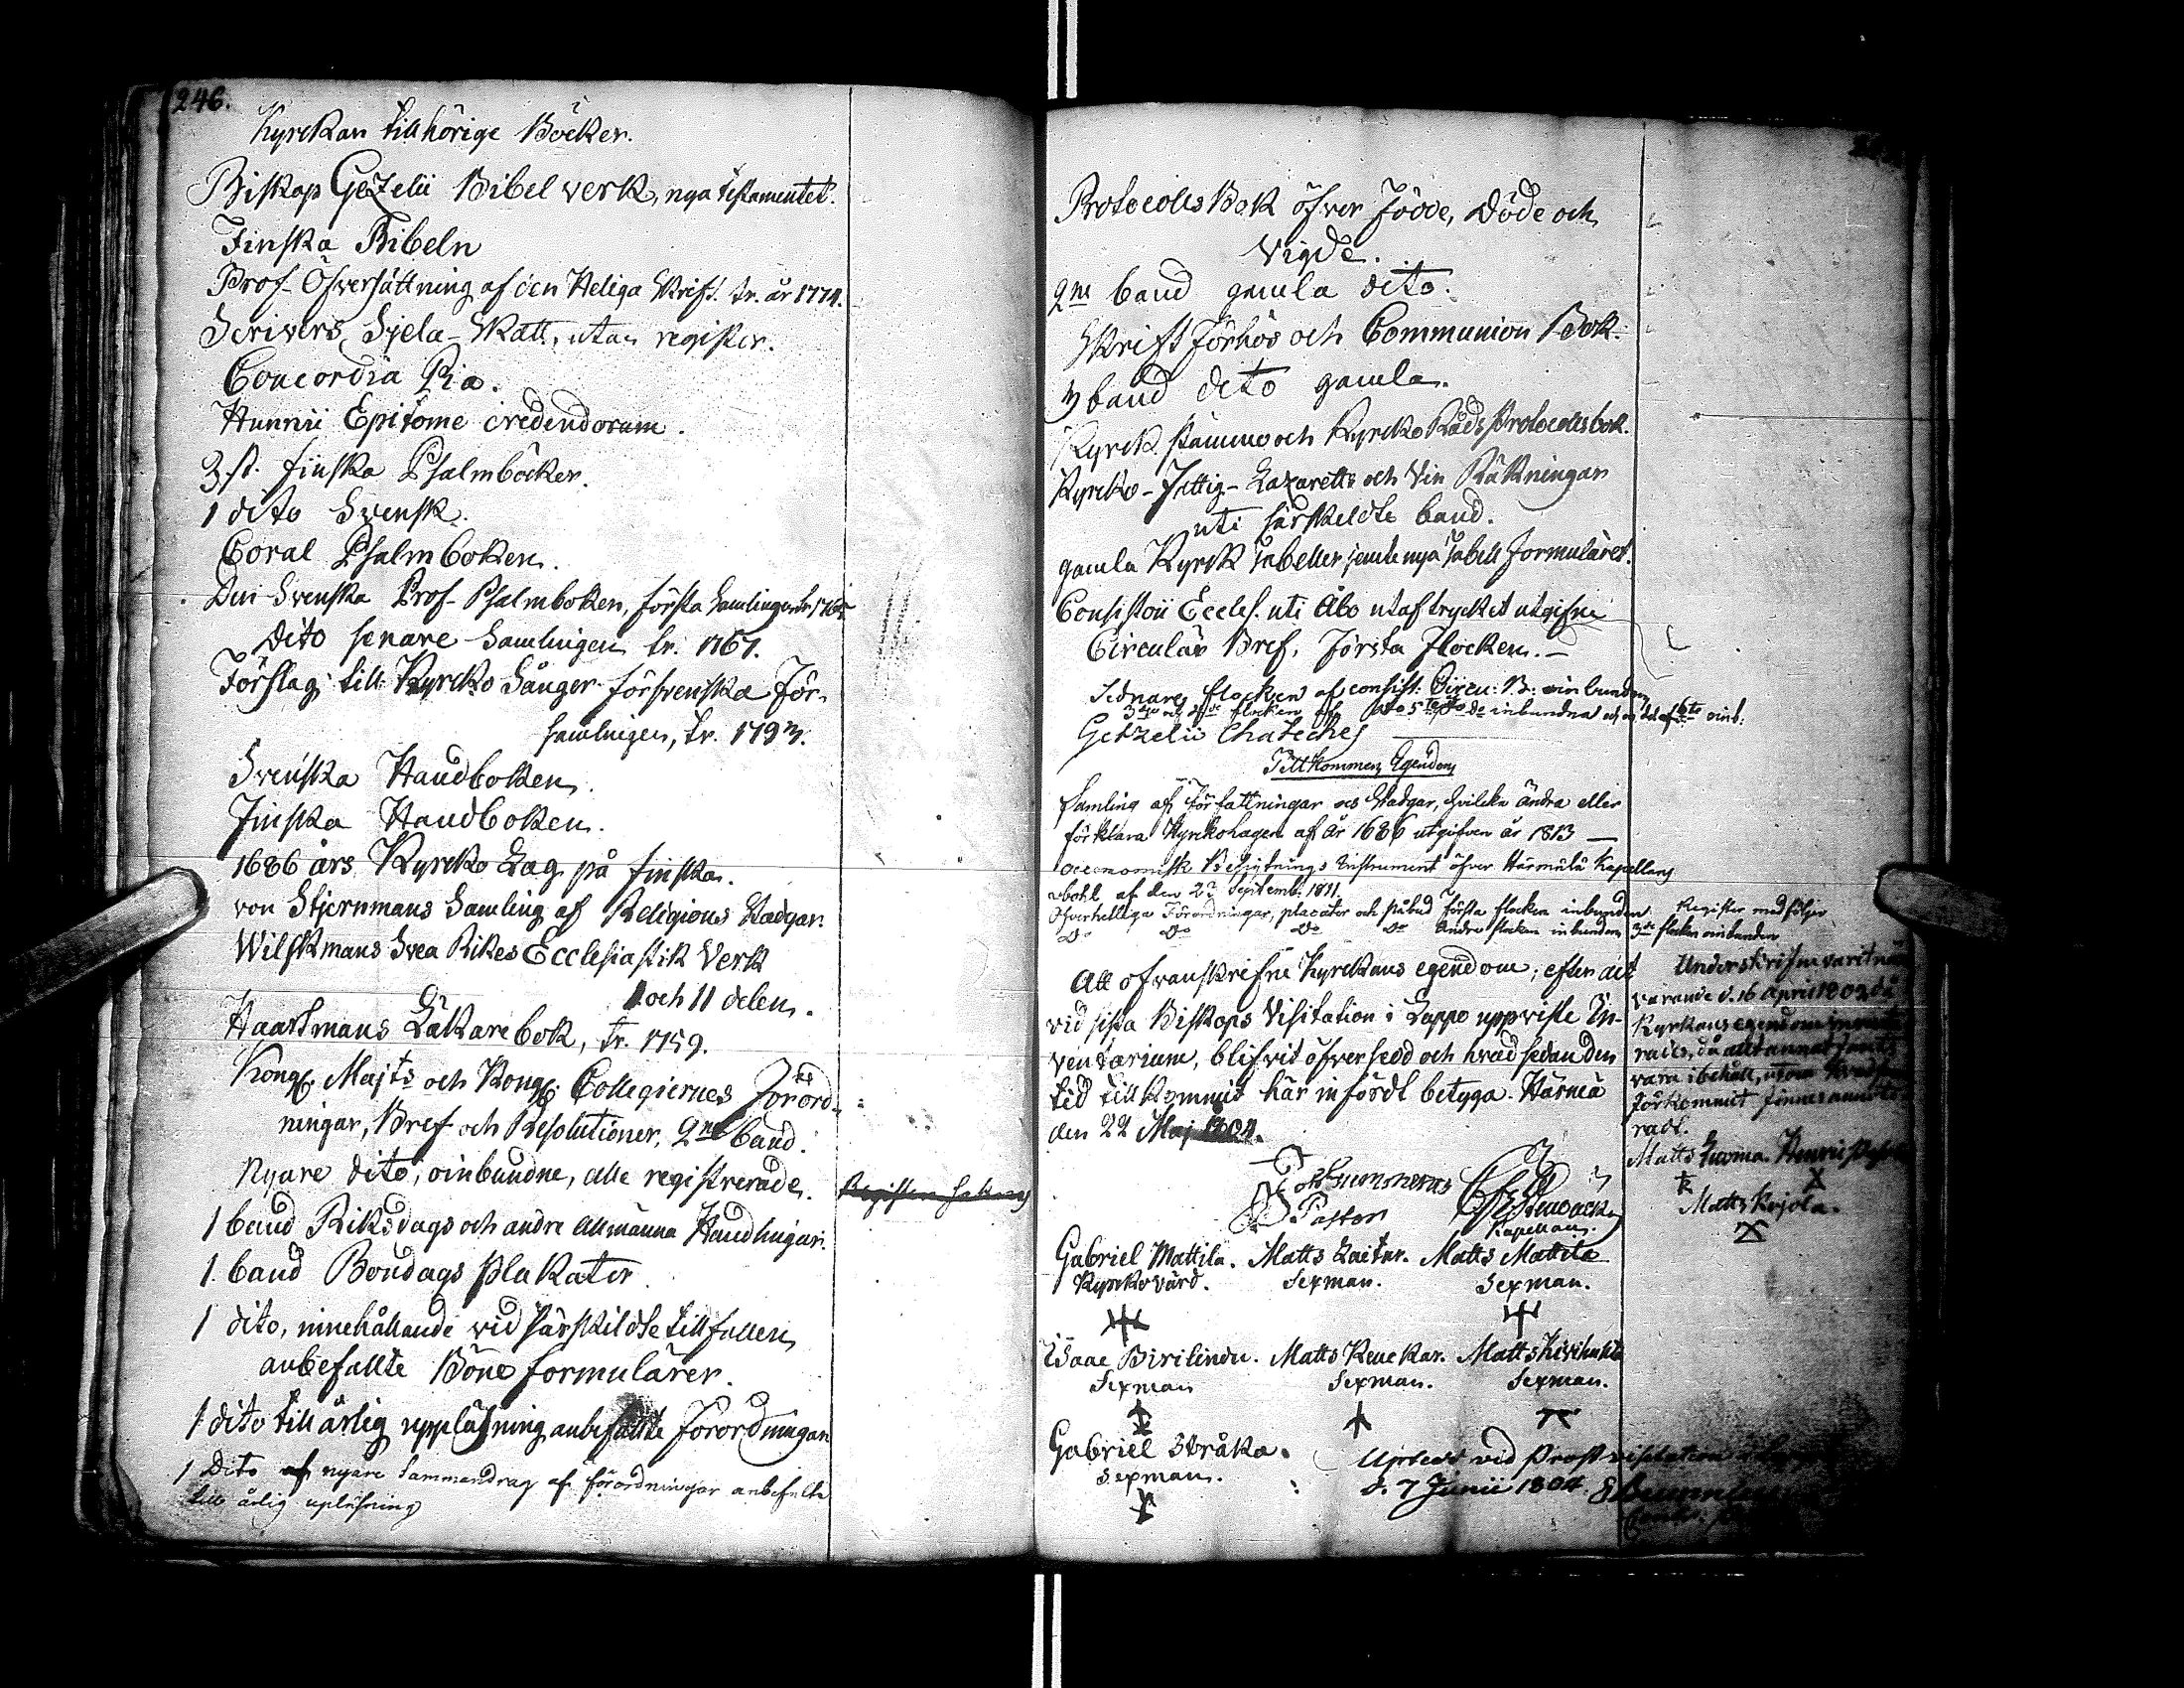 246.
Kyrckan tillhörige Böcker.
Biskop Gezelii Bibel verk, nya testamentet.
Finska Bibeln
Prof-Öfversättning af den Heliga Skrift. tr. år 1774.
Scrivers Sjela-Skatt, utan register.
Concordia Pia.
Hunnii Epitome credendorum.
3 st. finska Psalmböcker.
1 dito Svensk.
Coral Psalmboken.
Den Svenska Prof-Psalmboken, första Samlingen tr. 1765
Dito senare Samlingen tr. 1767.
Förslag till Kyrcko Sånger för svenska För-
samlingen, tr. 1793.
Svenska Handboken.
Finska Handboken.
1686 års Kyrcko Lag på finska.
von Stjernmans Samling af Religions Stadgar.
Wilskmans Svea Rikes Ecclesiastik Verk
I och II delen.
Haartmans Läkare bok, tr. 1759.
Kongl. Majts och Kongl. Collegiernes Förord-
ningar, Bref och Resolutioner, 2ne band.
Nyare dito, oinbundne, alle registrerade.
Registren saknas
1 band Riksdags och andre allmänna Handlingar.
1. band Bondags Plakater
1 dito, innehållande vid särskildte tillfällen
anbefallte Böne formulärer.
1 dito till årlig uppläsning anbefallte Förordningar
1 Dito af nyare Sammandrag af förordningar anbefalte
till årlig upläsning
Protocolls Bok öfver Födde, Döde och
Vigde.
2ne band gamla dito.
Skriftförhörs och Communion Bok.
3 band dito gamla.
Kyrck stämmo och Kyrcko Råds Protocolls bok.
Kyrcko-Fattig-Lazaretts och Vin Räkningar
uti särskeldte band.
gamla Kyrck Tabeller jemte nya Tabell formuläret.
Consistorii Eccles. uti Åbo utaf trycket utgifne
Circulär Bref, första flocken.
Sednare flocken af consist: Circu: B: oinbunden
3die och 4de flocken af dito 5te inbundna och en del af 6te oinb:
Getzelii Chateches
Tillkommen Egendom
Samling af Författningar och Stadgar, hvilcka ändra eller
förklara Kyrkolagen af år 1686 utgifven år 1813
Oeconomisk Besigtnings Instrument öfver Härmälä Kapellans
bohl af den 23 Septemb. 1811.
Öfverhetliga Förordningar, placater och påbud första flocken inbunden
Register medföljer
Do Do Do Do Andra flocken inbunden 3de flocken oinbunden
Att ofvanskrifne Kyrckans egendom, efter det
vid sista Biskops Visitation i Lappo uppviste In-
ventarium, blifvit öfversedd och hvad sedan den
tid tillkommit här infördt betyga. Härmä
den 22 Maj 1804.
Pastor
Kapellan.
Gabriel Mattila. Matts Laitar. Matts Mattila
Kyrkovärd. Sexman. Sexman.
Isaac Pirilindu. Matts Keuckar. Matts
Sexman Sexman. Sexman.
Gabriel Stråka.
Sexman.
Upläst vid Prost visitation
d. 7 Junii 1804.
Underskrifne varit när-
varande d. 16 April 1809 då
Kyrkans egendom
rades, då allt annat
vara i behåll, utom hvad
förkommit finnes annote-
radt.
Matts Luoma. Henric
Matts Kujola.